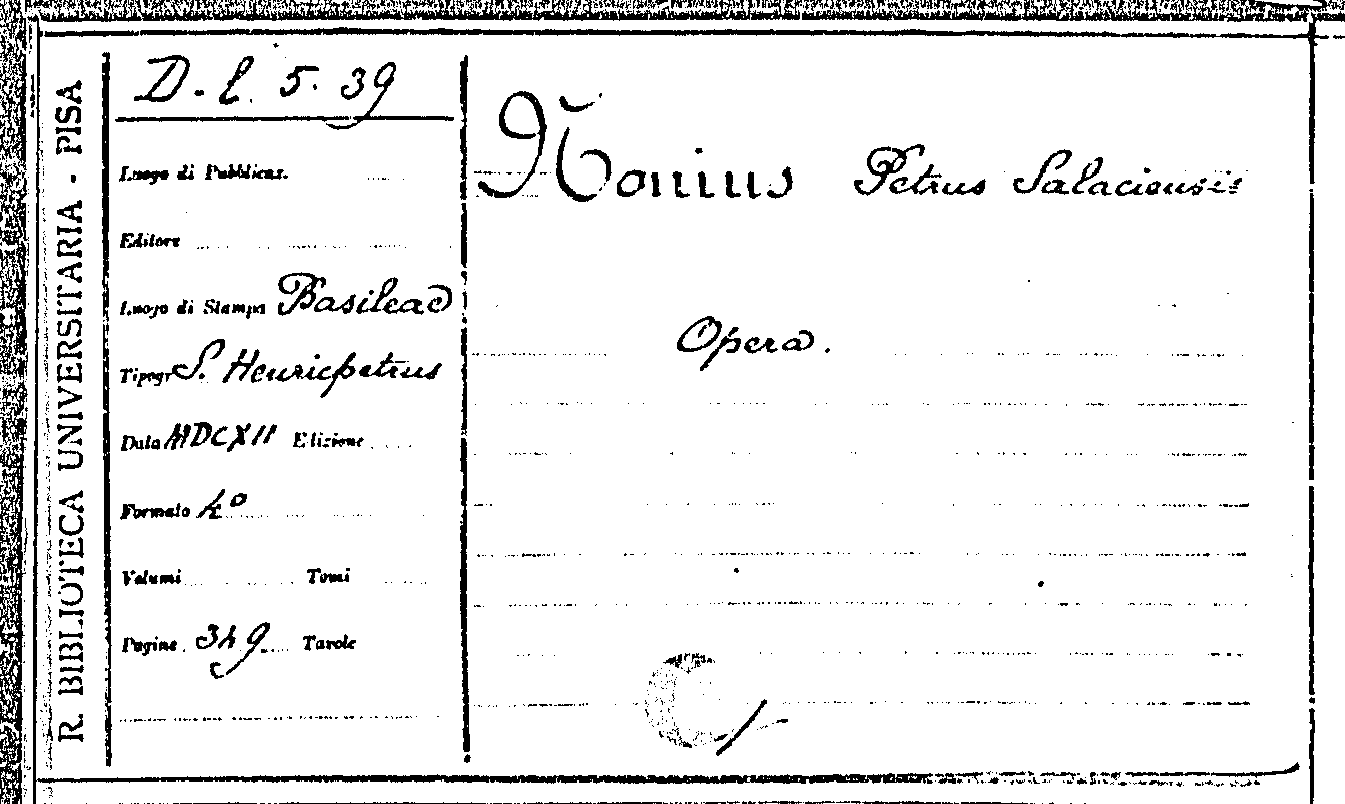 R. BIBLIOTECA UNIVERSITARIA - PISA
D. l. 5. 39
Luogo di Pubblicaz.
Editore
Luogo di Stampa Basileae
Tipogr. S. Henricpetrus
Data MDCXII Edizione
Formato 4°
Volumi Tomi
Pagine 349. Tavole
Nonius Petrus Salaciensis
Opera.